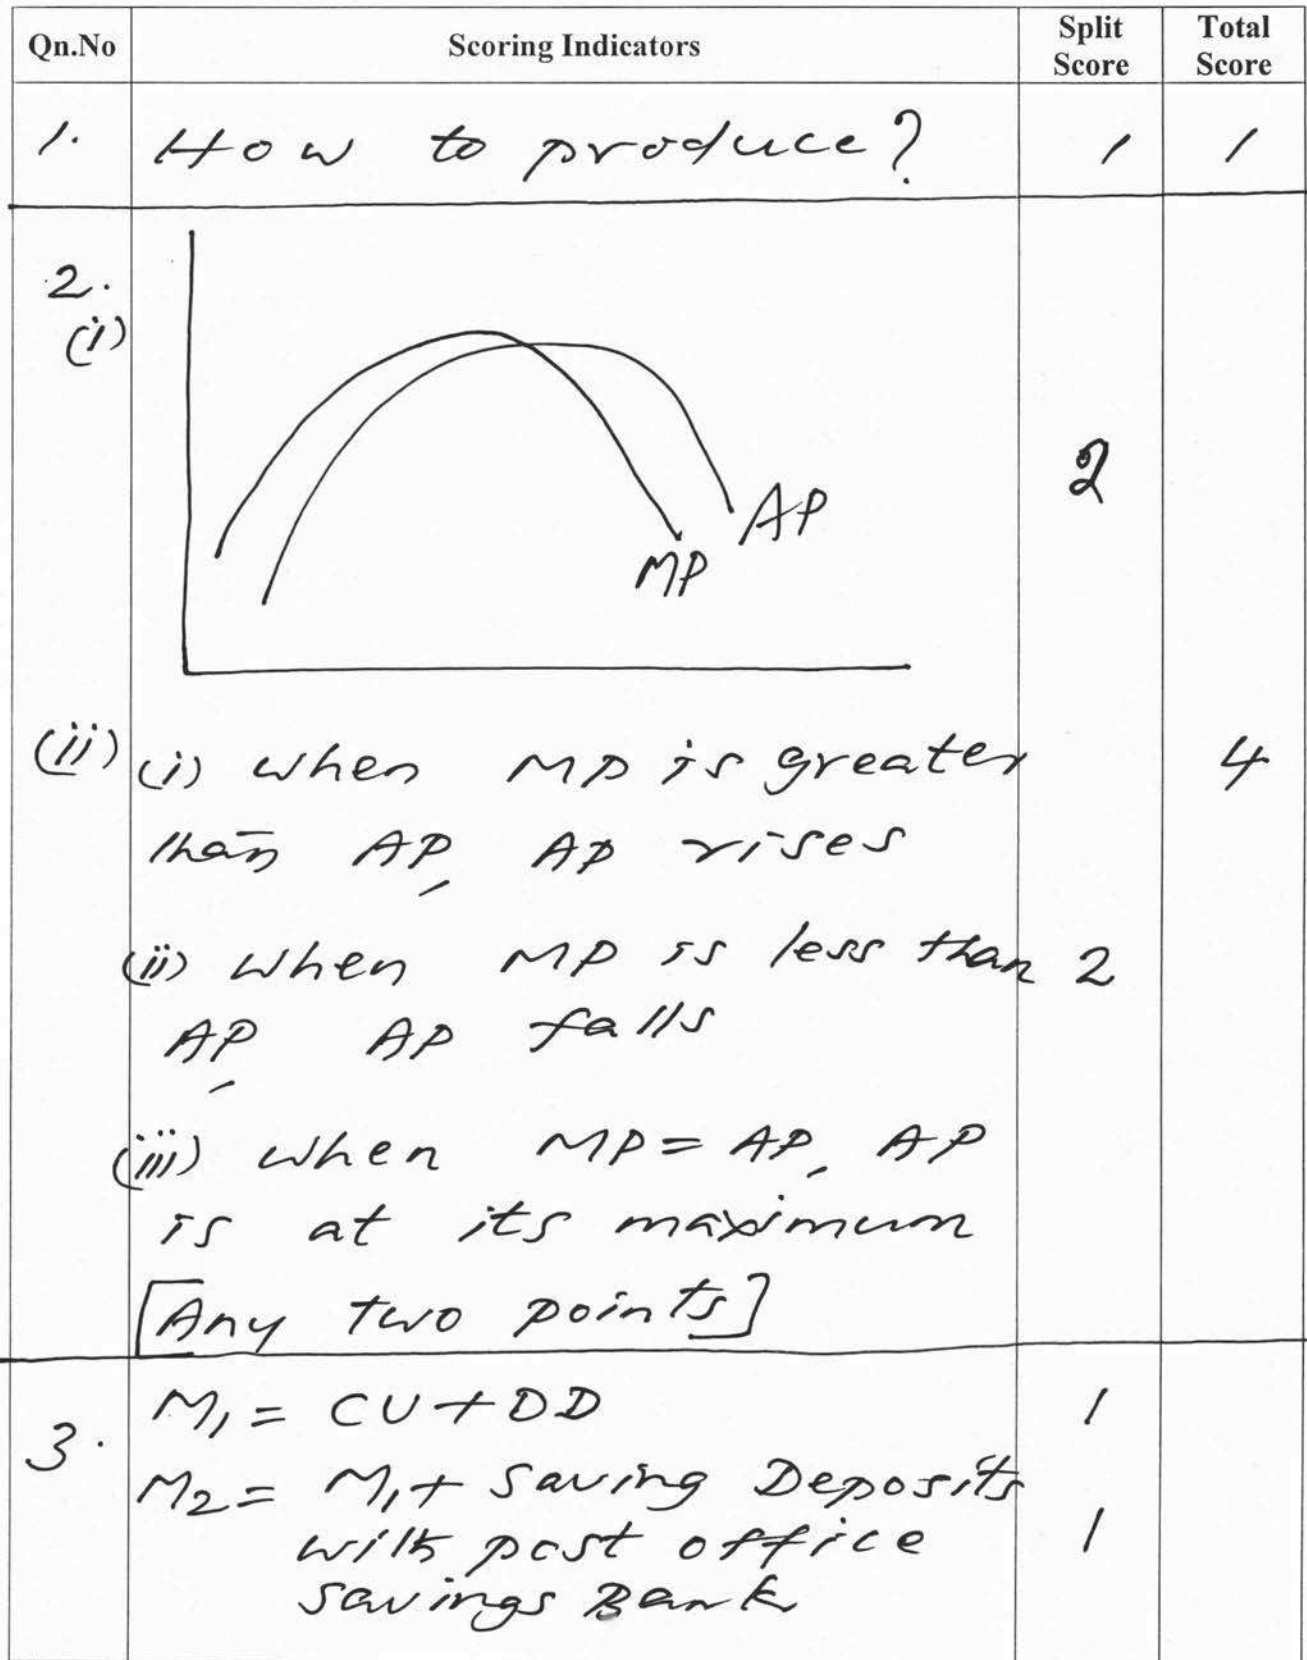 Qn.No Scoring Indicators Split Score Total Score
1. How to produce? 1 1
2.
(i)
2
AP
MP
(ii) (i) when MP is greater 4
than AP, AP rises
(ii) when MP is less than 2
AP, AP falls
(iii) when MP = AP, AP
is at its maximum
[Any two points]
3. M1 = CU + DD 1
M2 = M1 + Saving Deposits
with post office 1
savings Bank